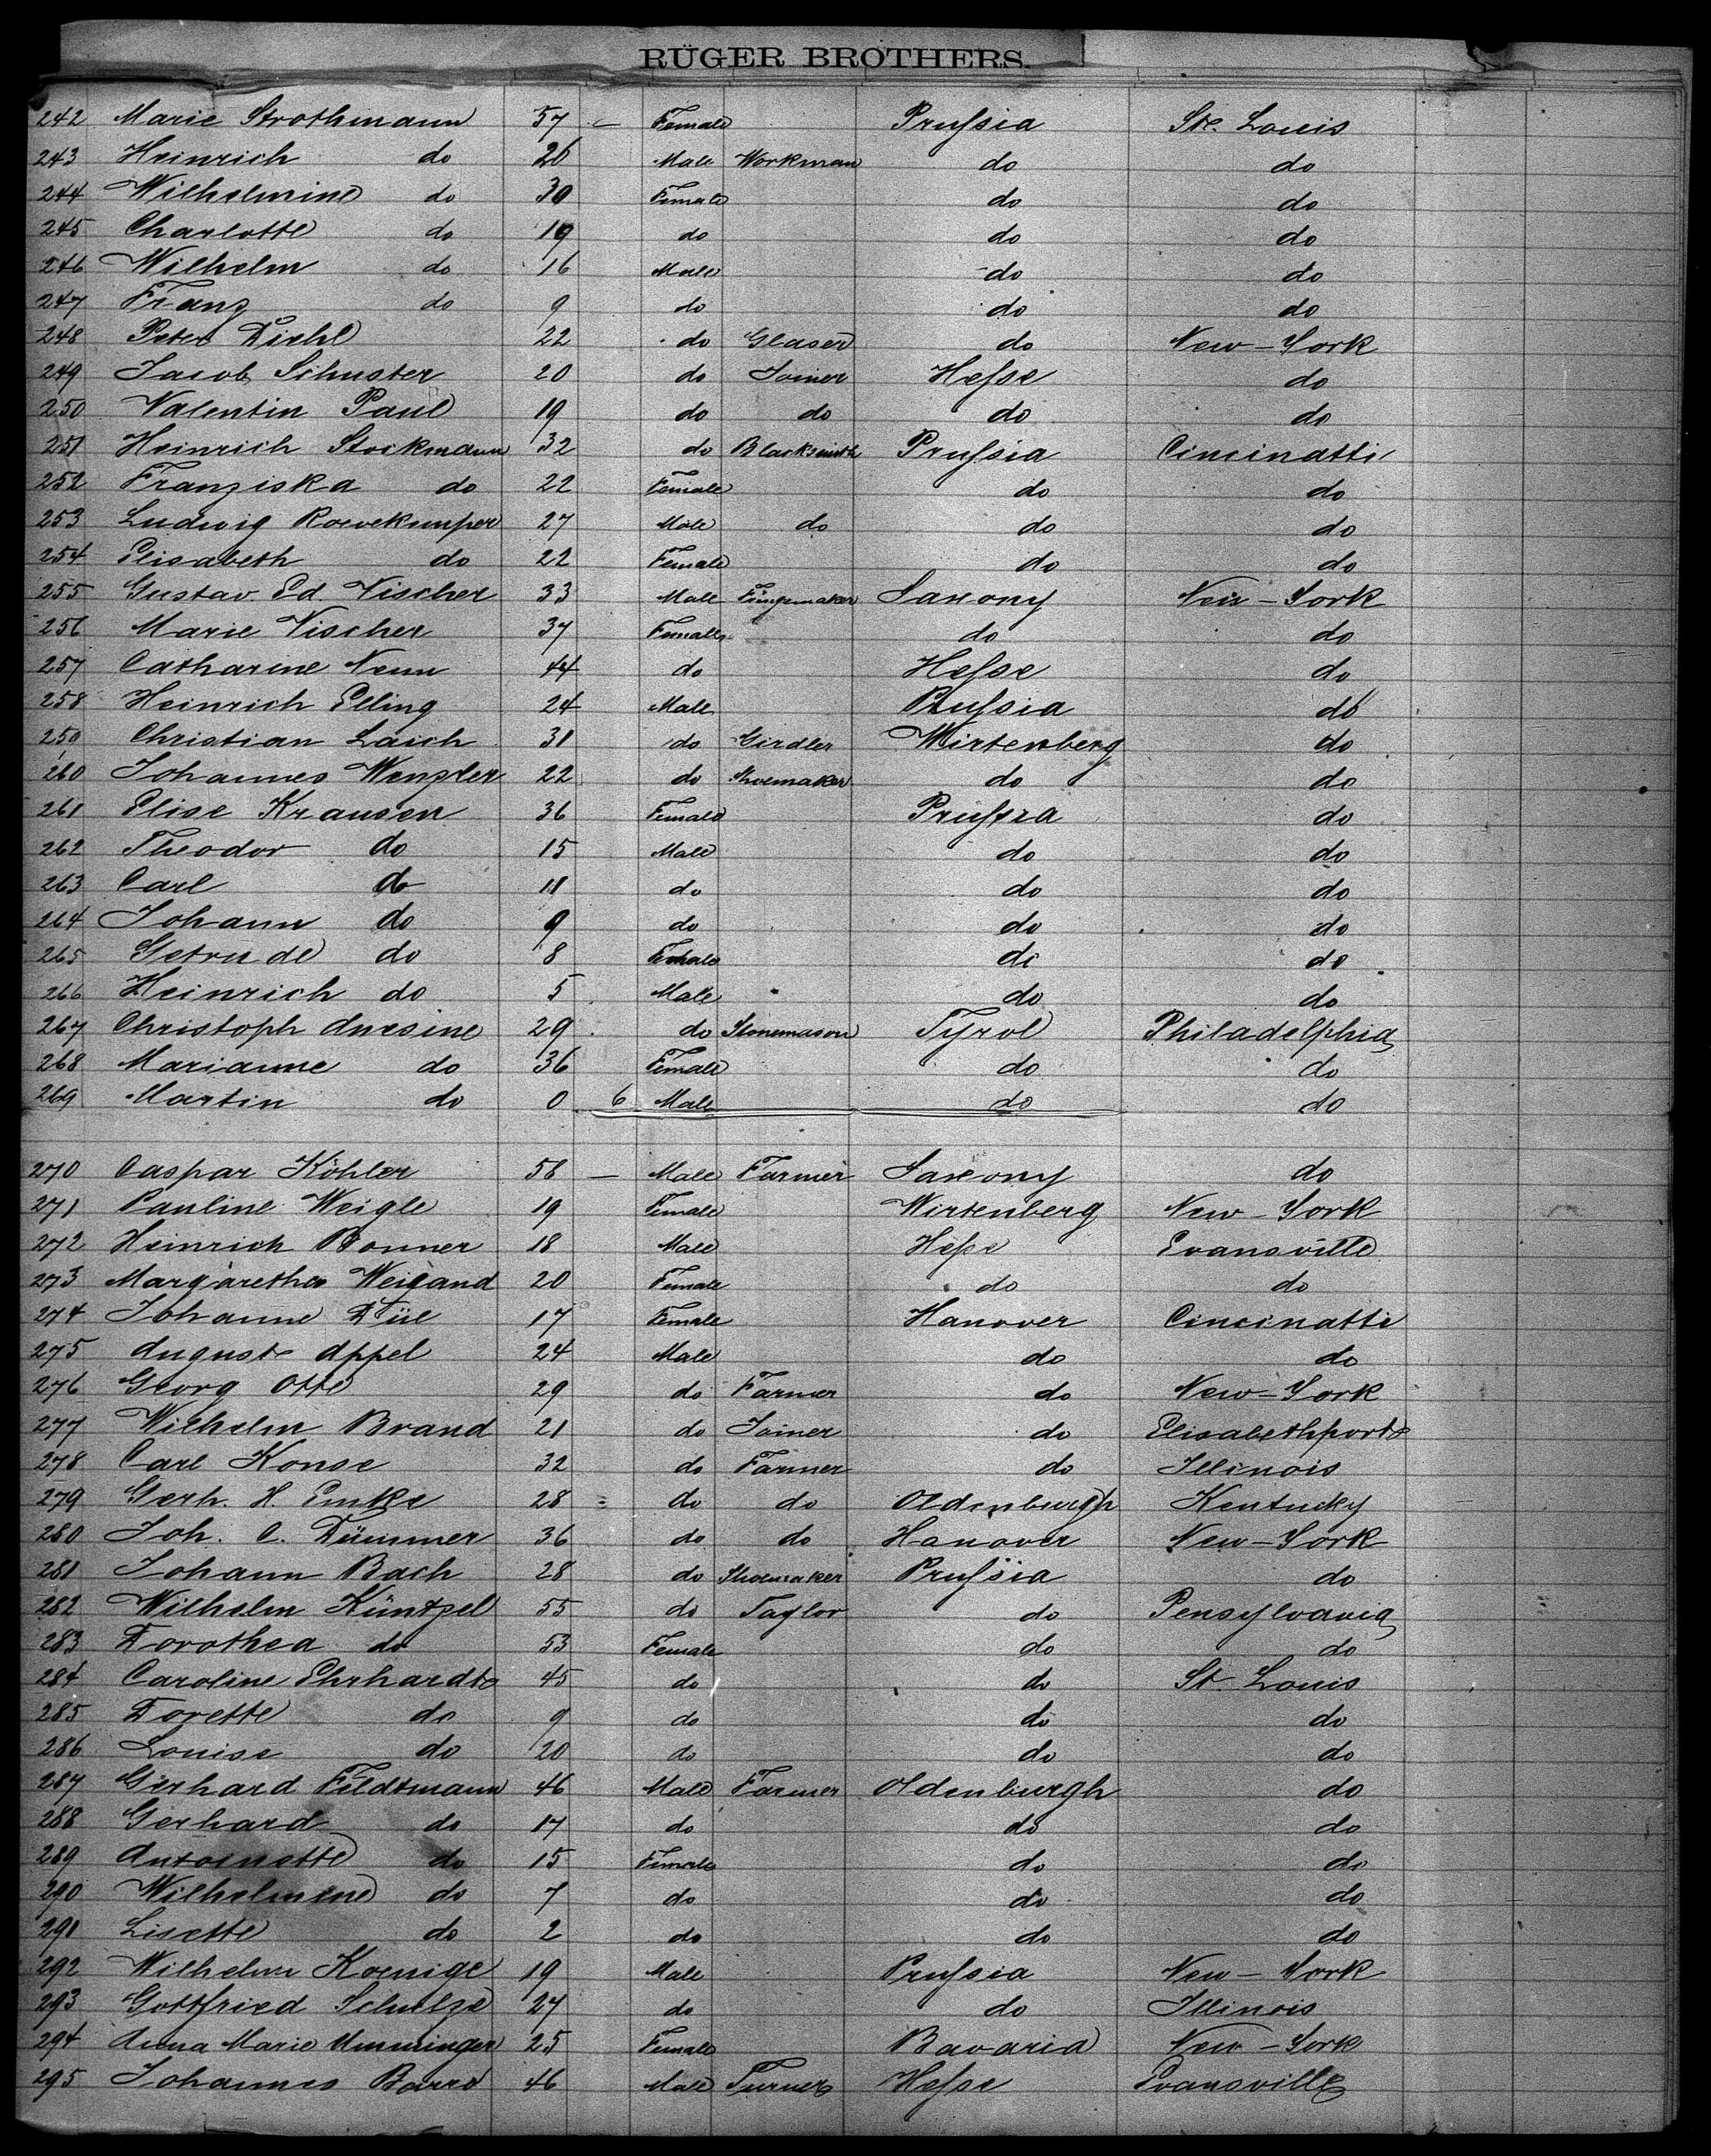 RÜGER BROTHERS.
242 Marie Strothmann 57 — Female Prussia St. Louis
243 Heinrich do 26 Male Workman do do
244 Wilhelmine do 30 Female do do
245 Charlotte do 19 do do do
246 Wilhelm do 16 Male do do
247 Franz do 9 do do do
248 Peter Diehl 22 do Glaser do New-York
249 Jacob Schuster 20 do Joiner Hesse do
250 Valentin Paul 19 do do do do
251 Heinrich Stockmann 32 do Blacksmith Prussia Cincinatti
252 Franziska do 22 Female do do
253 Ludwig 27 Male do do do
254 Elisabeth do 22 Female do do
255 Gustav Ed. Vischer 33 Male Saxony New-York
256 Marie Vischer 37 Female do do
257 Catharine Nenn 44 do Hesse do
258 Heinrich Elling 24 Male Prussia do
259 Christian Laich 31 do Girdler Wirtenberg do
260 Johannes Wenzler 22 do Shoemaker do do
261 Elise Krausen 36 Female Prussia do
262 Theodor do 15 Male do do
263 Carl do 11 do do do
264 Johann do 9 do do do
265 Getrude do 8 Female do do
266 Heinrich do 5 Male do do
267 Christoph 29 do Stonemason Tyrol Philadelphia
268 Marianne do 36 Female do do
269 Martin do 0 6 Male do do
270 Caspar Köhler 58 — Male Farmer Saxony do
271 Pauline Weigle 19 Female Wirtenberg New-York
272 Heinrich Bonner 18 Male Hesse Evansville
273 Margarethe Weigand 20 Female do do
274 Johanne Düe 17 Female Hanover Cincinatti
275 August Appel 24 Male do do
276 Georg Otte 29 do Farmer do New-York
277 Wilhelm Brand 21 do Joiner do Elisabethport
278 Carl Konse 32 do Farmer do Illinois
279 Gerh. H. Emke 28 do do Oldenburgh Kentucky
280 Joh. C. Dümmer 36 do do Hanover New-York
281 Johann Bach 28 do Shoemaker Prussia do
282 Wilhelm Küntzel 55 do Taylor do Pensylvania
283 Dorothea do 53 Female do do
284 Caroline Ehrhardt 45 do do St. Louis
285 Dorette do 9 do do do
286 Louise do 20 do do do
287 Gerhard Feldtmann 46 Male Farmer Oldenburgh do
288 Gerhard do 17 do do do
289 Antoinette do 15 Female do do
290 Wilhelmine do 7 do do do
291 Lisette do 2 do do do
292 Wilhelm Koenige 19 Male Prussia New-York
293 Gottfried Schulze 27 do do Illinois
294 Anna Marie 25 Female Bavaria New-York
295 Johannes 46 Male Turner Hesse Evansville